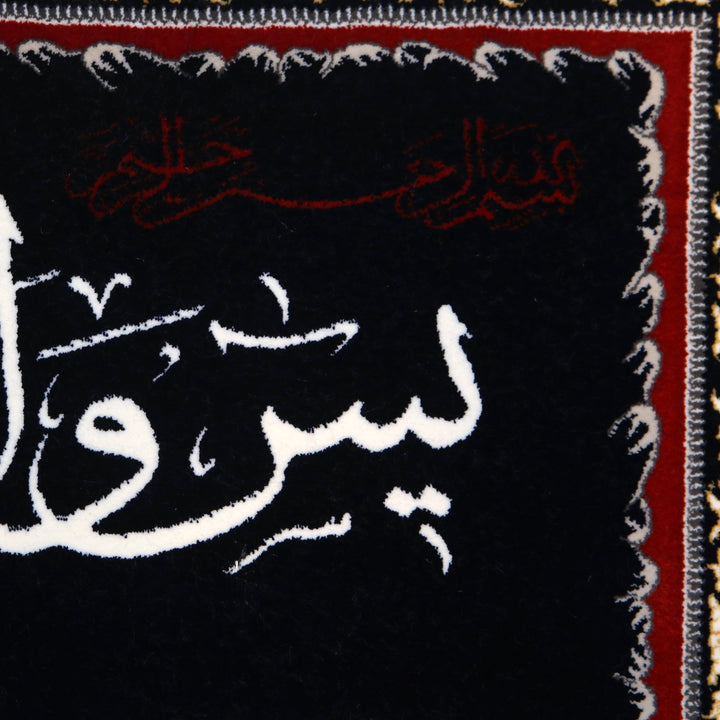 بسم الله الرحمن الرحيم
يس وَا